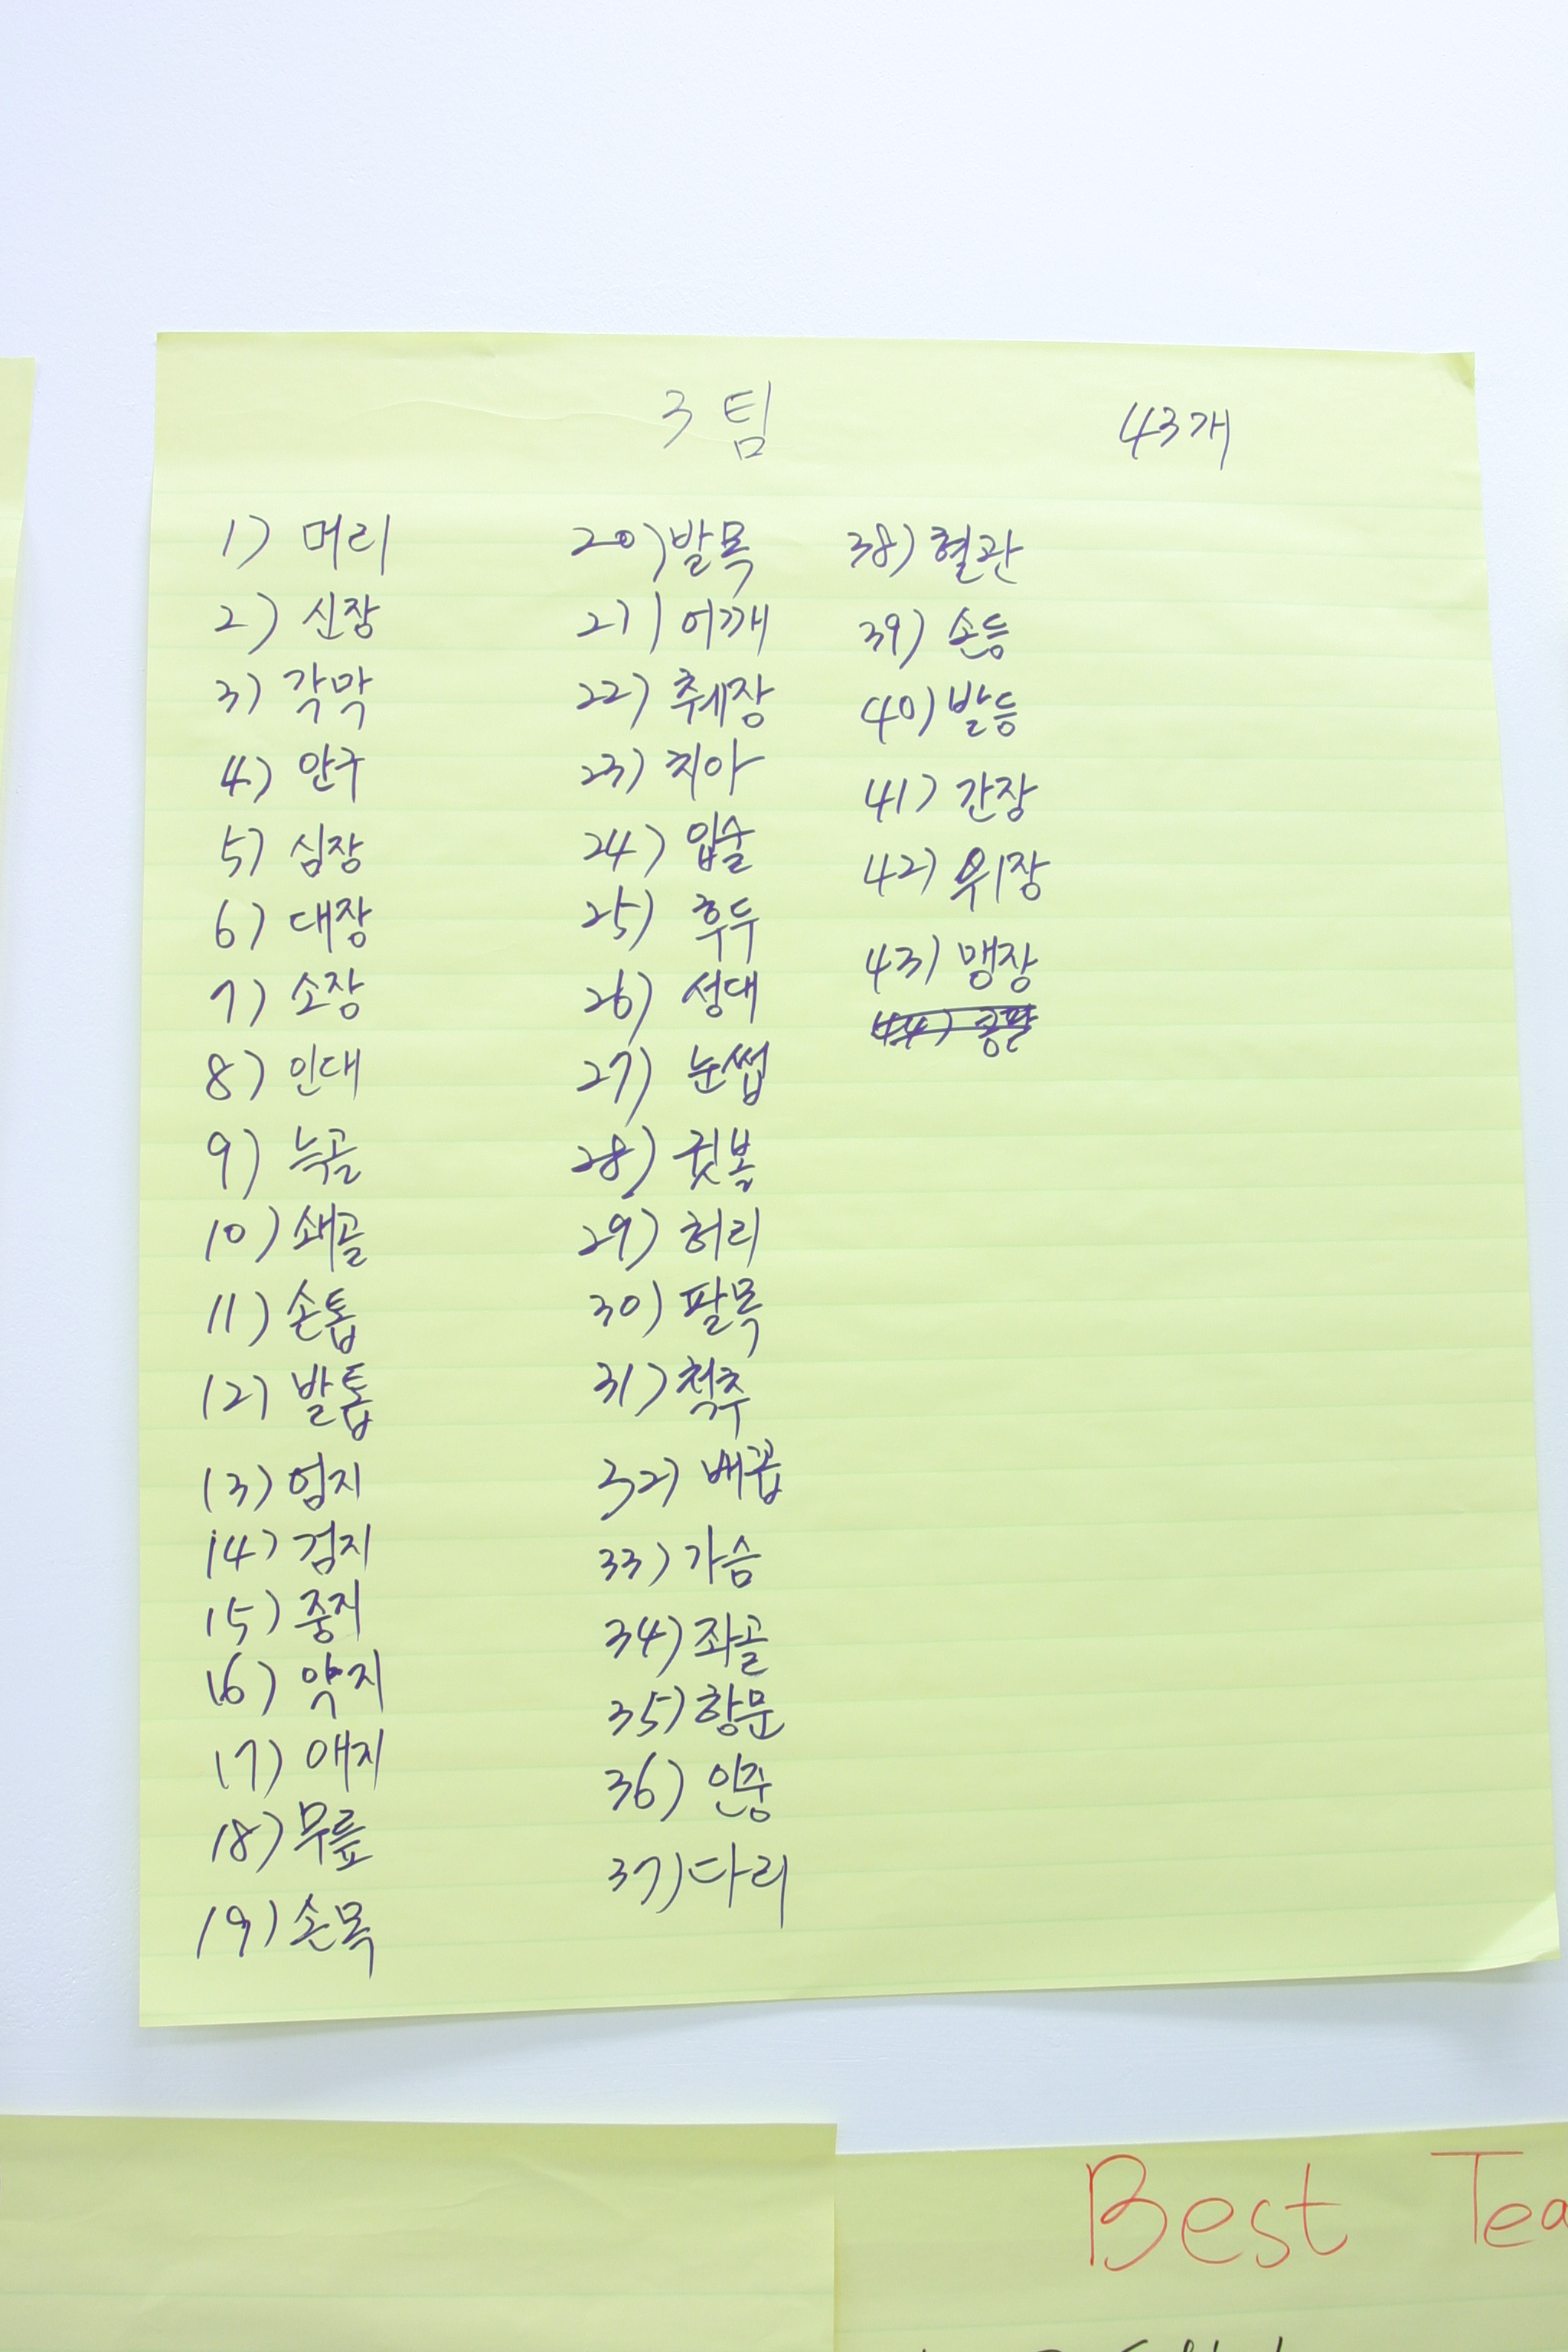 3팀
43개
1) 머리
2) 신장
3) 각막
4) 안구
5) 심장
6) 대장
7) 소장
8) 인대
9) 늑골
10) 쇄골
11) 손톱
12) 발톱
13) 엄지
14) 검지
15) 중지
16) 약지
17) 애지
18) 무릎
19) 손목
20) 발목
21) 어깨
22) 췌장
23) 치아
24) 입술
25) 후두
26) 성대
27) 눈썹
28) 귓볼
29) 허리
30) 팔목
31) 척추
32) 배꼽
33) 가슴
34) 좌골
35) 항문
36) 인중
37) 다리
38) 혈관
39) 손등
40) 발등
41) 간장
42) 위장
43) 맹장
44)
Best Tea